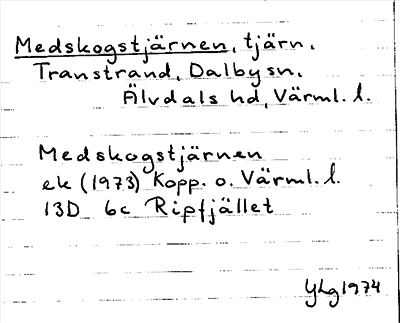 Medskogstjärnen, tjärn.
Transtrand, Dalby sn.
Älvdals hd, Värml. l.
Medskogstjärnen
ek (1973) Kopp. o. Värml. l.
13D 6c Ripfjället
YLg 1974